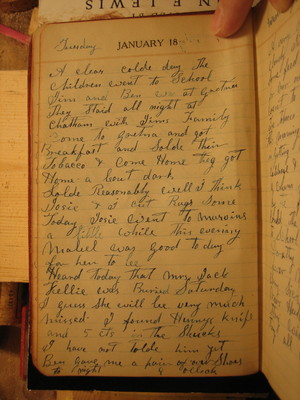 N E LEWIS
Tuesday JANUARY 18
A clear colde day the
children went to School
Jim and Ben were at Gretna
They Staid all night at
Chatham with Jims Family
Come to Gretna and got
Breakfast and Solde their
Tobacco & Come Home they got
Home a bout dark
Solde Reasonably well I think
Josie & I cut Rags Some
Today Josie went to
a little While this evening
Mabel was good today
for her to be
Heard today that Mrs Jack
Kellie was Buried Saturday
I guess She will be very much
missed I found Henrys knife
and 5 cts in the Shucks
I have not tolde him yet
Ben Gave me a pair of new Shoes
to night 9 oclock